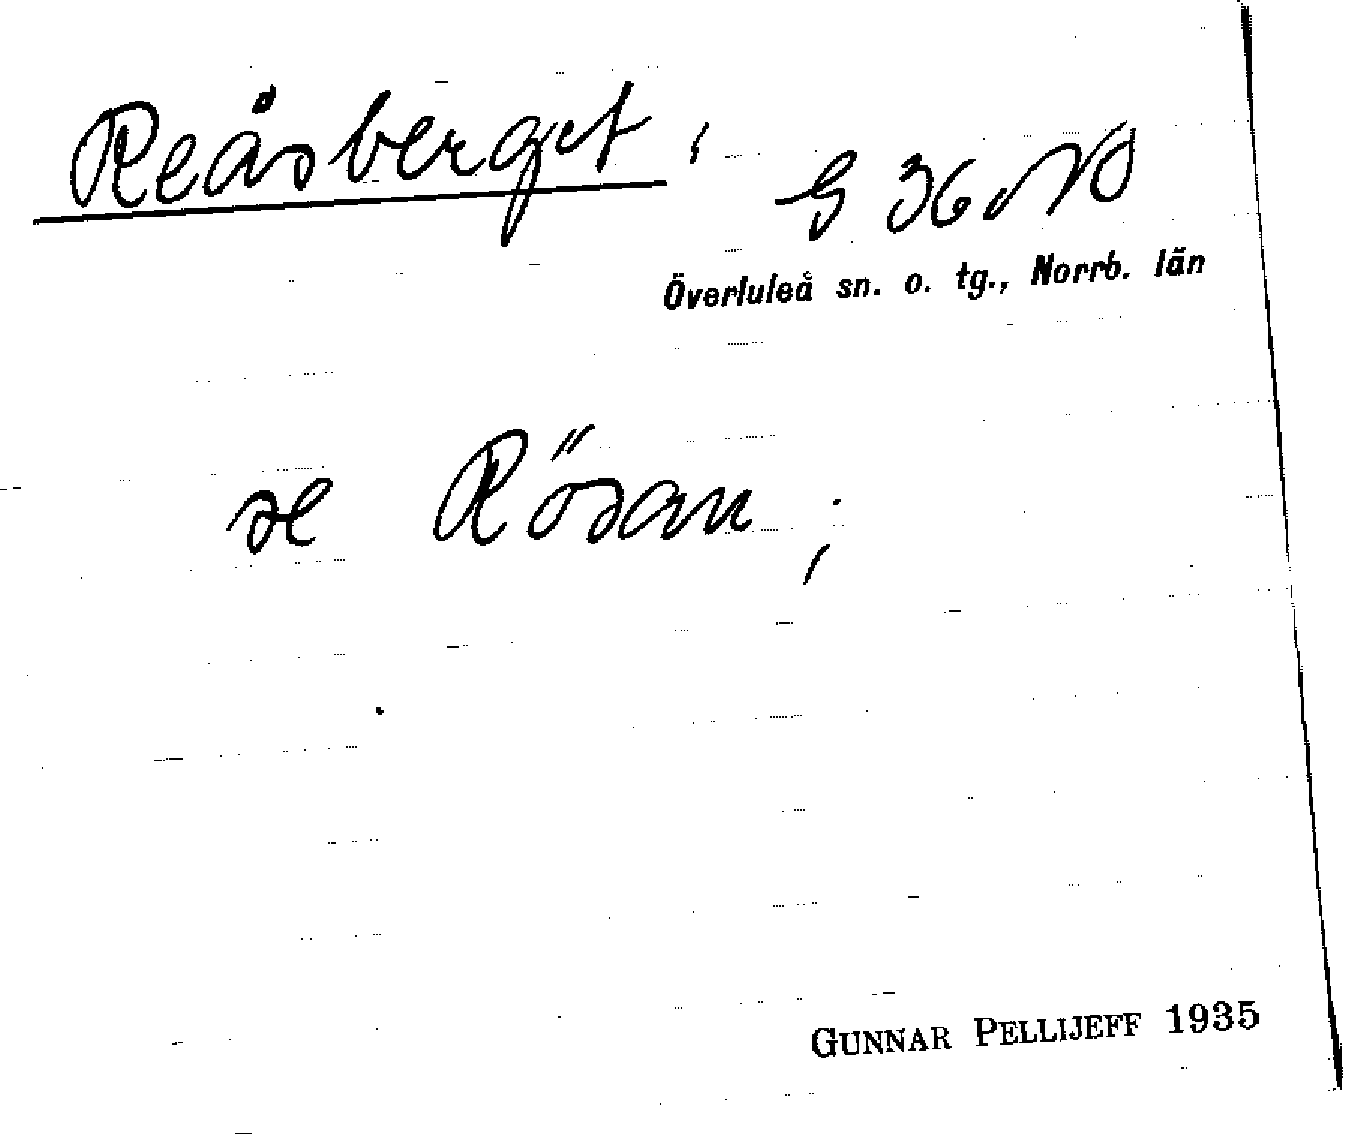 Reåsberget,
G 36 NO
Överluleå sn. o. tg., Norrb. län
se Rösan;
GUNNAR PELLIJEFF 1935